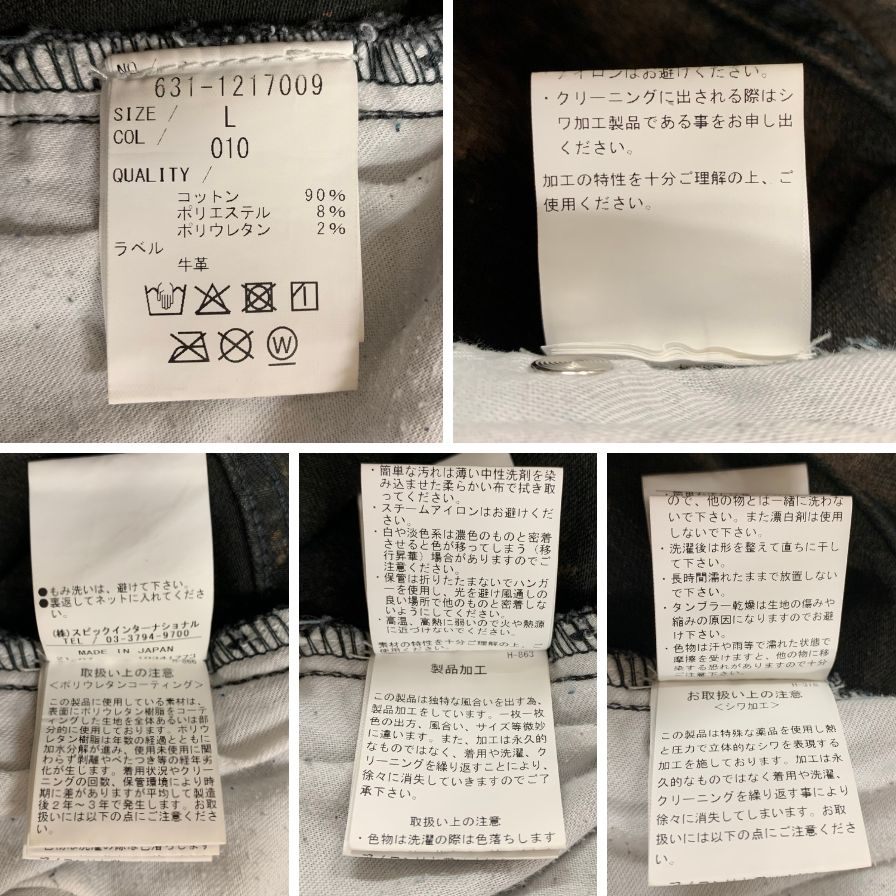 NO
631-1217009
SIZE / L
COL / 010
QUALITY /
コットン 90%
ポリエステル 8%
ポリウレタン 2%
ラベル
牛革
W
アイロンはお避けください。
・クリーニングに出される際はシ
ワ加工製品である事をお申し出
ください。
加工の特性を十分ご理解の上、ご
使用ください。
●もみ洗いは、避けて下さい。
●裏返してネットに入れてくださ
い。
(株)スピックインターナショナル
TEL 03-3794-9700
MADE IN JAPAN
取扱い上の注意
<ポリウレタンコーティング>
この製品に使用している素材は、
表面にポリウレタン樹脂をコーテ
ィングした生地を全体あるいは部
分的に使用しております。ポリウ
レタン樹脂は年数の経過とともに
加水分解が進み、使用未使用に関
わらず剥離やべたつき等の経年劣
化が生じます。着用状況やクリー
ニングの回数、保管環境により時
期に差がありますが平均して製造
後2年〜3年で発生します。お取
扱いには以下の点にご注意くださ
い。
・簡単な汚れは薄い中性洗剤を染
み込ませた柔らかい布で拭き取
ってください。
・スチームアイロンはお避けくだ
さい。
・白や淡色系は濃色のものと密着
させると色が移ってしまう(移
行昇華)場合がありますのでご
注意ください。
・保管は折りたたまないでハンガ
ーを使用し、光を避け風通しの
良い場所で他のものと密着しな
いようにしてください。
・高温、高熱に弱いので火や熱源
に近づけないでください。
素材の特性を十分ご理解の上、ご
使用ください。
H-863
製品加工
この製品は独特な風合いを出す為、
製品加工をしています。一枚一枚
色の出方、風合い、サイズ等微妙
に違います。また、加工は永久的
なものではなく、着用や洗濯、ク
リーニングを繰り返すことにより、
徐々に消失していきますのでご了
承下さい。
取扱い上の注意
・色物は洗濯の際は色落ちします
ので、他の物とは一緒に洗わな
いで下さい。また漂白剤は使用
しないで下さい。
・洗濯後は形を整えて直ちに干し
て下さい。
・長時間濡れたままで放置しない
で下さい。
・タンブラー乾燥は生地の傷みや
縮みの原因になりますのでお避
け下さい。
・色物は汗や雨等で濡れた状態で
摩擦を受けますと、他の物に移
染する恐れがありますので十分
ご注意下さい。
お取扱い上の注意
<シワ加工>
この製品は特殊な薬品を使用し熱
と圧力で立体的なシワを表現する
加工を施しております。加工は永
久的なものではなく着用や洗濯、
クリーニングを繰り返す事により
徐々に消失してしまいます。お取
扱いには以下の点にご注意くださ
い。